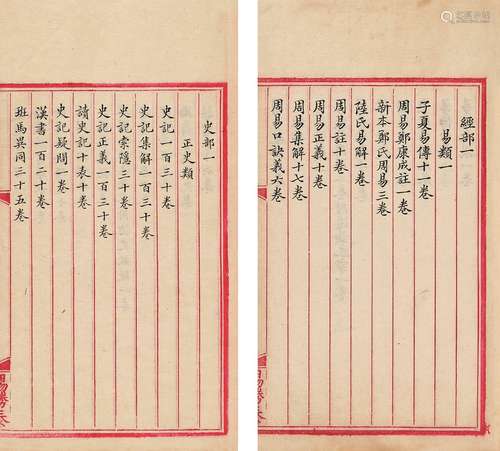 經部一
易類一
子夏易傳十一卷
周易鄭康成註一卷
新本鄭氏周易三卷
陸氏易解一卷
周易註十卷
周易正義十卷
周易集解十七卷
周易口訣義六卷
史部一
正史類
史記一百三十卷
史記集解一百三十卷
史記索隱三十卷
史記正義一百三十卷
讀史記十表十卷
史記疑問一卷
漢書一百二十卷
班馬異同三十五卷